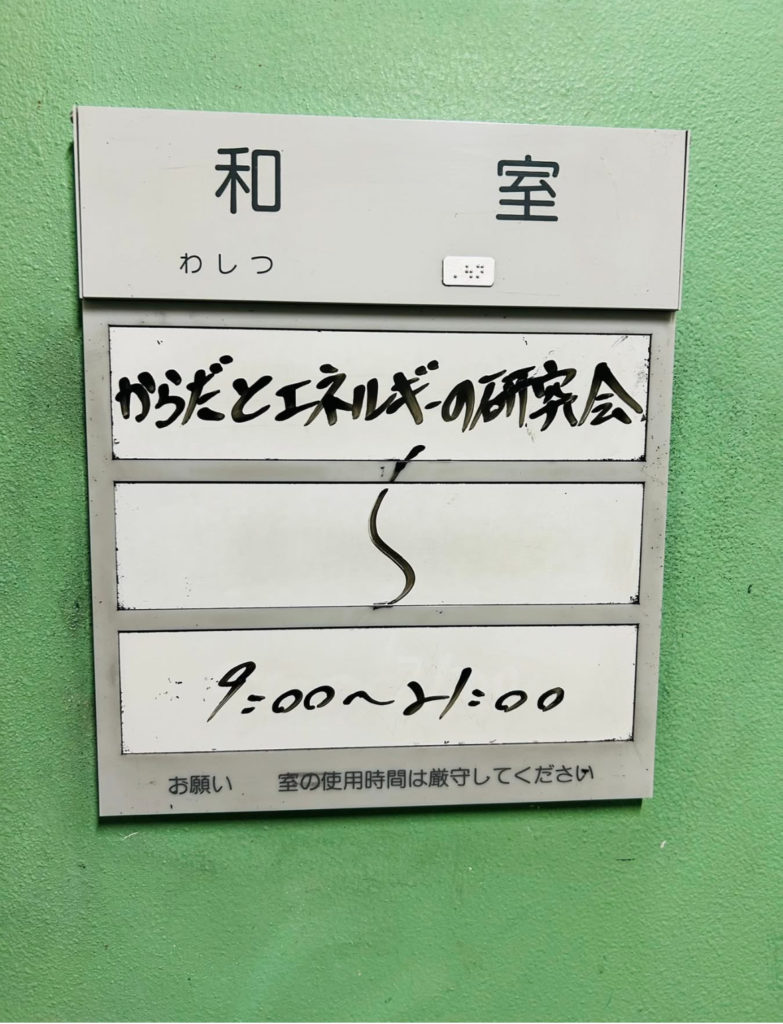 和 室
わしつ
からだとエネルギーの研究会
〜
9:00〜21:00
お願い 室の使用時間は厳守してください